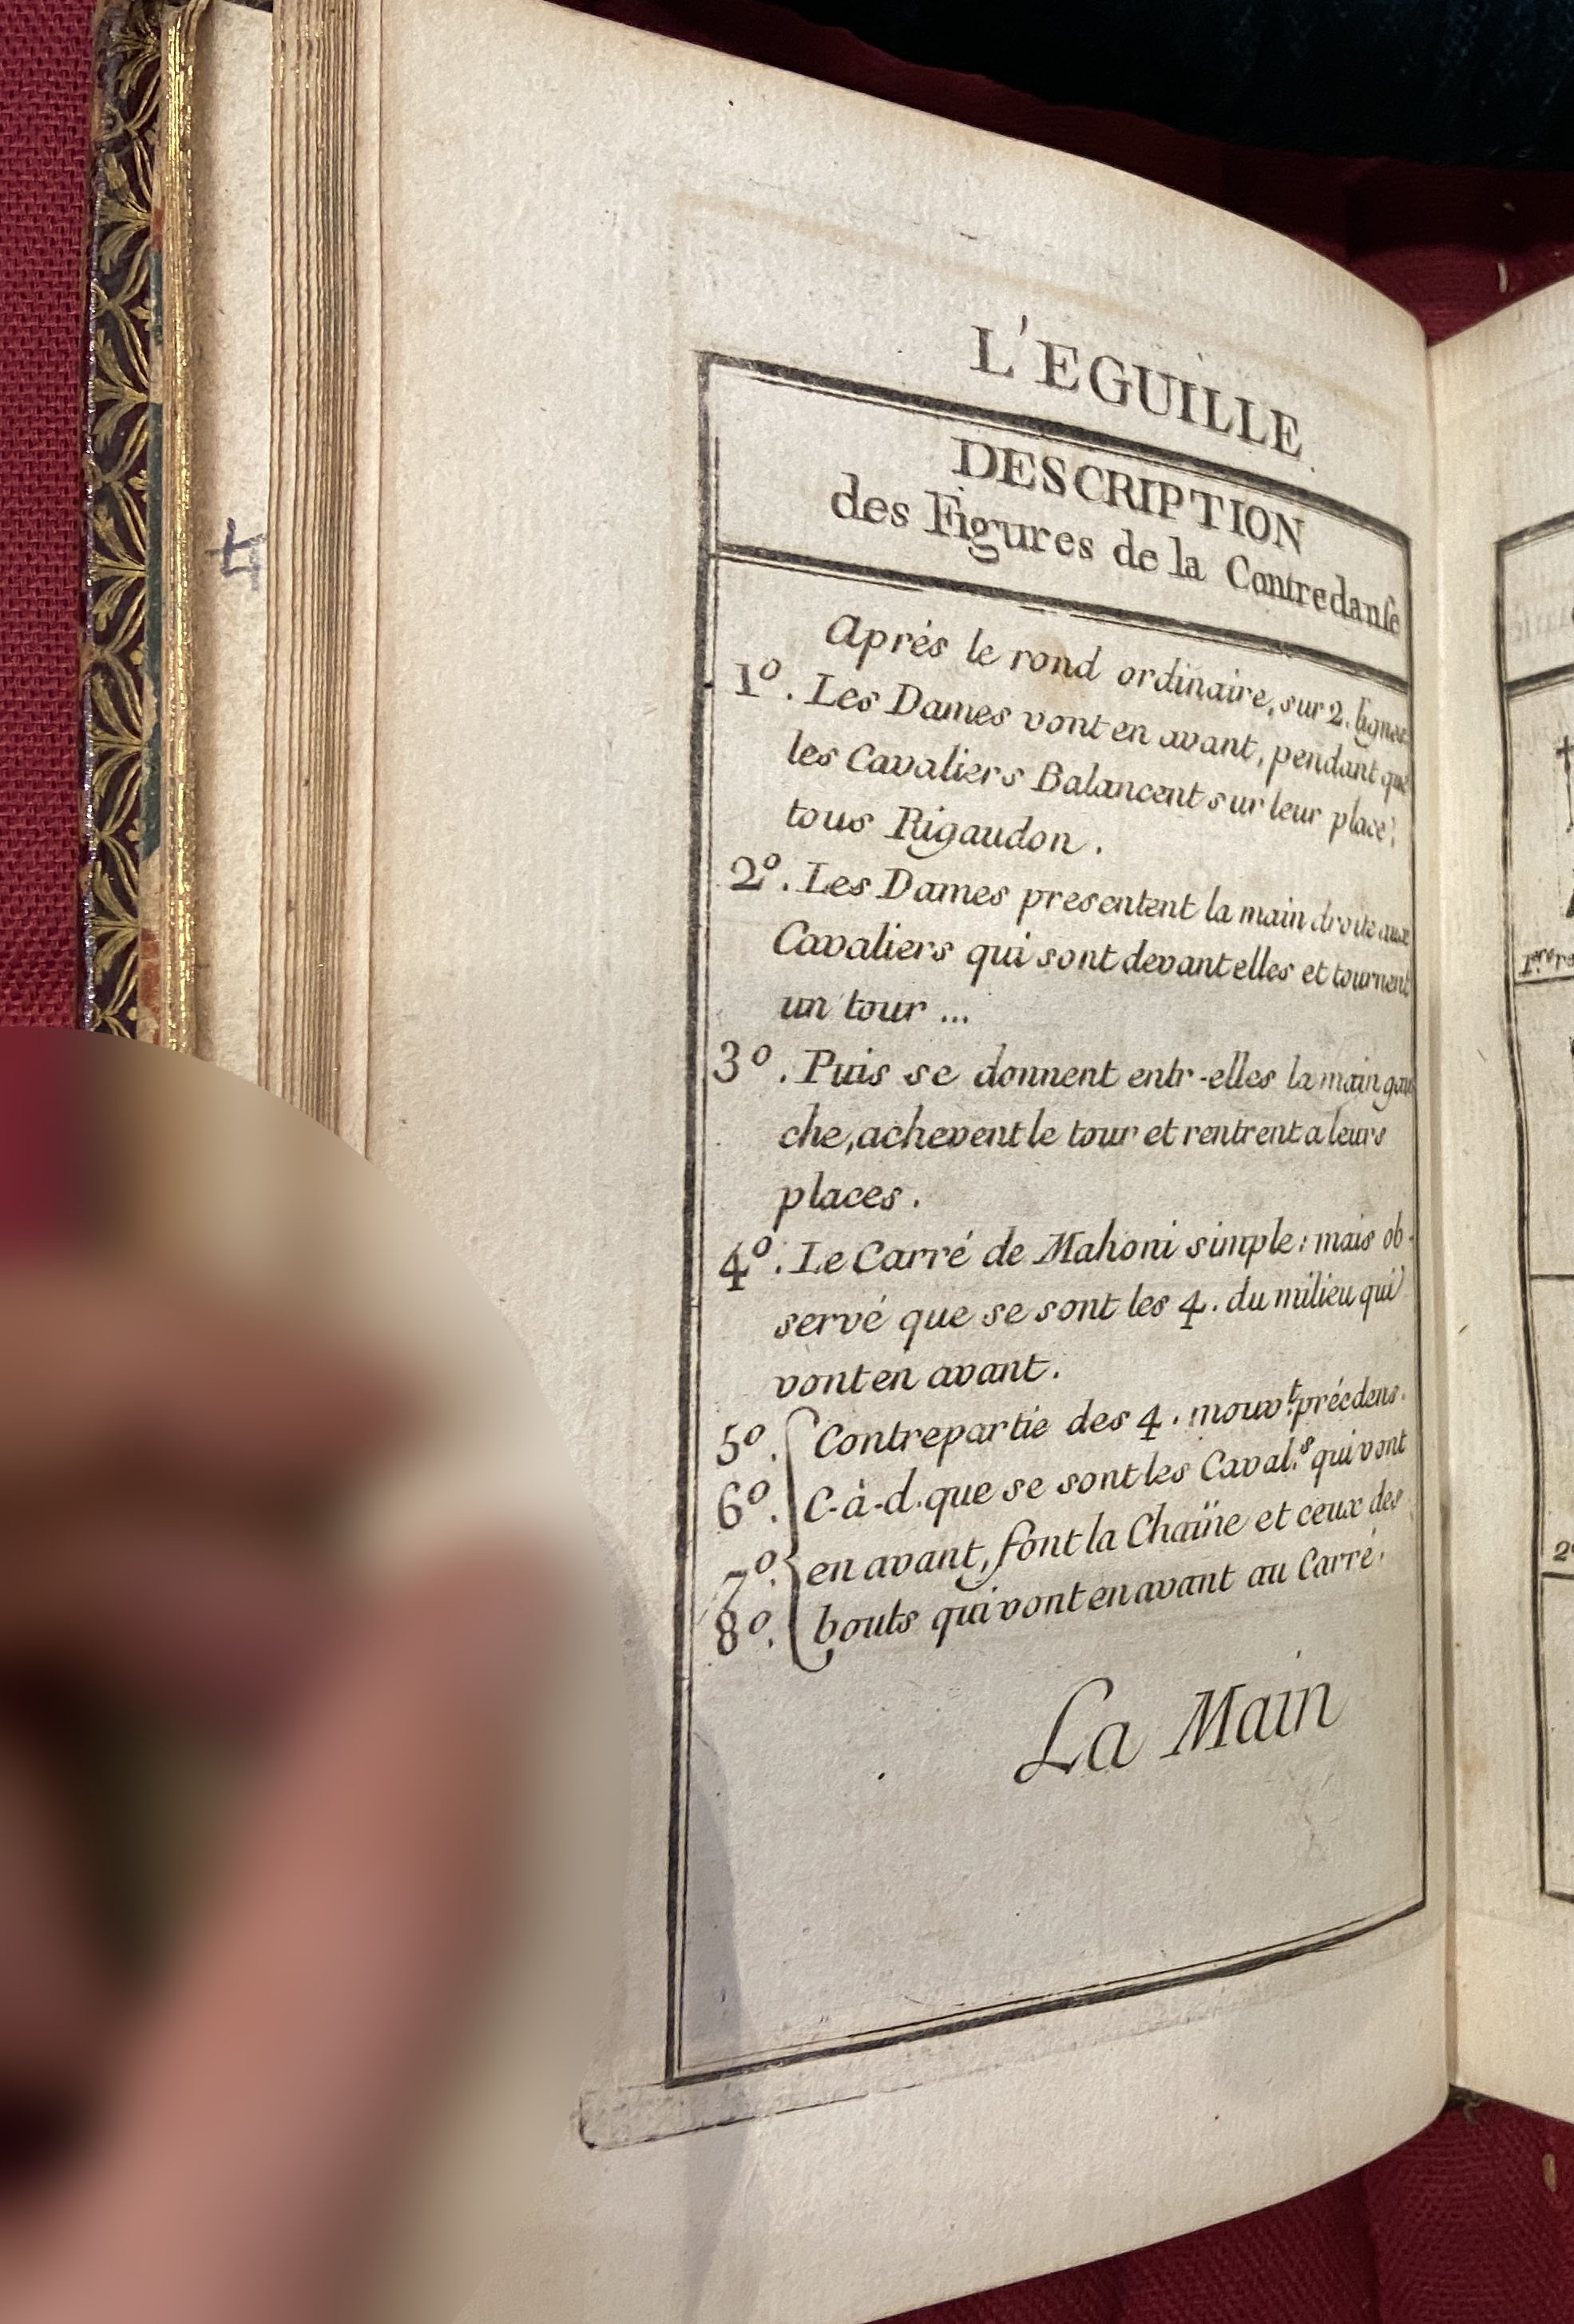 L'EGUILLE
DESCRIPTION
des Figures de la Contredanſe
Aprés le rond ordinaire, sur 2. lignes
1º. Les Dames vont en avant, pendant que
les Cavaliers Balancent sur leur place;
tous Rigaudon.
2º. Les Dames presentent la main droite aux
Cavaliers qui sont devant elles et tournent
un tour ...
3º. Puis se donnent entr-elles la main gau
che, achevent le tour et rentrent a leurs
places.
4º. Le Carré de Mahoni simple: mais ob-
servé que se sont les 4. du milieu qui
vont en avant.
5º. Contrepartie des 4. mouvt. précdens.
6º. C-à-d. que se sont les Caval.s qui vont
7º. en avant, font la Chaïne et ceux des
8º. bouts qui vont en avant au Carré.
La Main